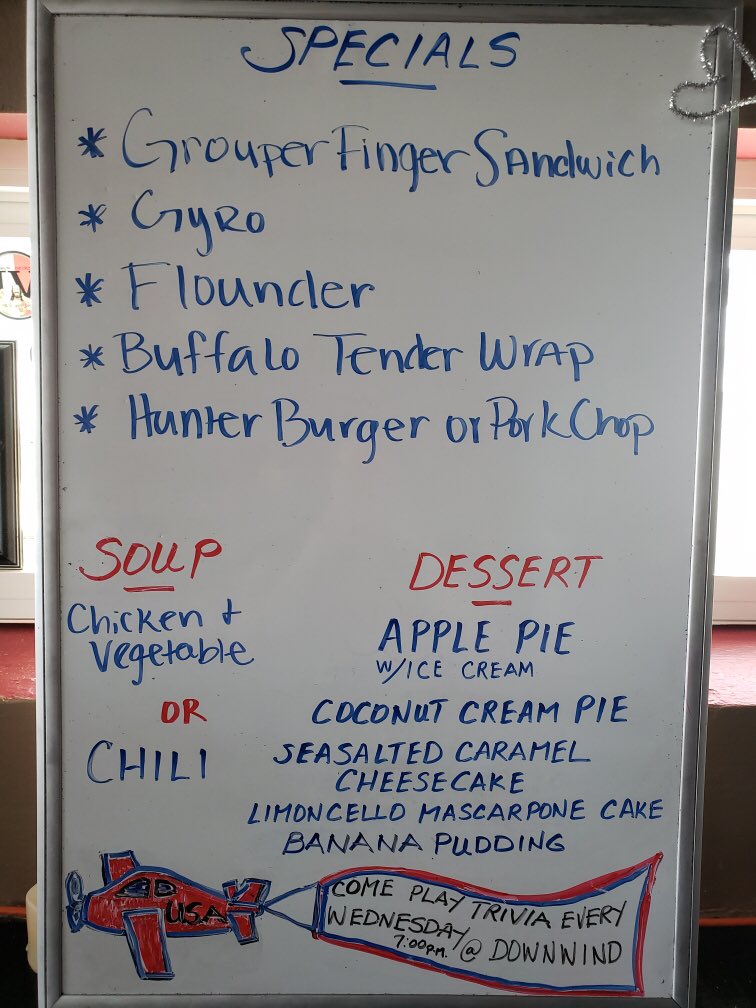 SPECIALS
* Grouper Finger Sandwich
* Gyro
* Flounder
* Buffalo Tender Wrap
* Hunter Burger or Pork Chop
SOUP
Chicken +
Vegetable
OR
CHILI
DESSERT
APPLE PIE
W/ICE CREAM
COCONUT CREAM PIE
SEASALTED CARAMEL
CHEESECAKE
LIMONCELLO MASCARPONE CAKE
BANANA PUDDING
USA
COME PLAY TRIVIA EVERY
WEDNESDAY @ DOWNWIND
7:00P.M.